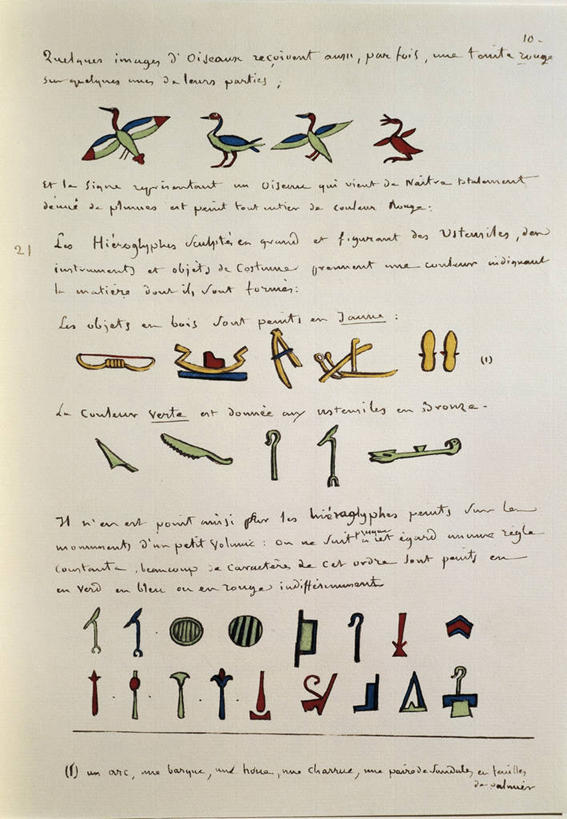 10-
Quelques images d'Oiseaux reçoivent aussi, par fois, une teinte rouge
sur quelques unes de leurs parties;
Et le Signe représentant un Oiseau qui vient de Naître totalement
dénué de plumes est peint tout entier de couleur Rouge:
21 Les Hiéroglyphes Sculptés en grand et figurant des Ustensiles, des
instruments et objets de Costume prennent une couleur indiquant
la matière dont ils sont formés:
Les objets en bois sont peints en Jaune:
(1)
La Couleur Verte est donnée aux ustensiles en Bronze-
Il n'en est point ainsi pour les hiéroglyphes peints sur les
monuments d'un petit Volume: on ne suit presque à cet égard aucune règle
constante, beaucoup de caractères de cet ordre sont peints en
en Verd en bleu ou en rouge indifféremment
(1) un arc, une barque, une houe, une charrue, une paire de Sandales en feuilles
de palmier